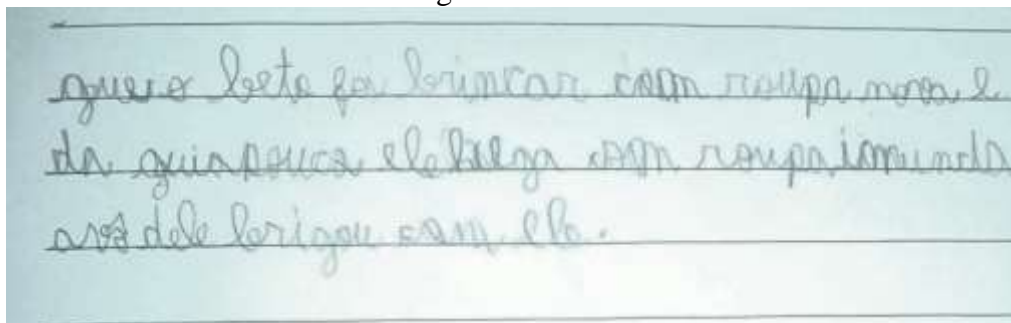 que o beto foi brincar com roupa nova e
da qui a pouco ele com roupa imunda
avó dele brigou com ele.